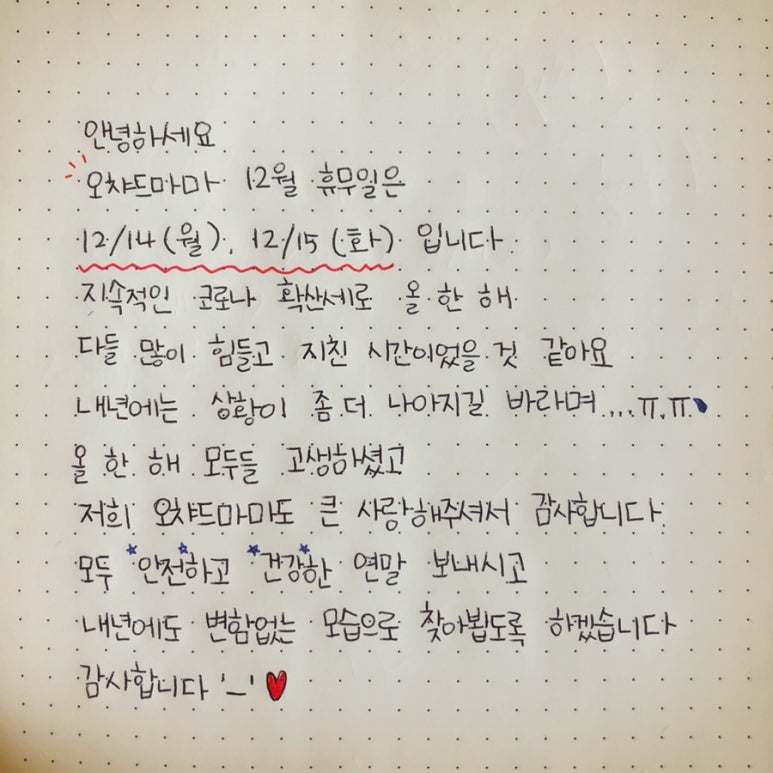 안녕하세요
오챠드마마 12월 휴무일은
12/14(월), 12/15(화) 입니다
지속적인 코로나 확산세로 올 한 해
다들 많이 힘들고 지친 시간이었을 것 같아요
내년에는 상황이 좀 더 나아지길 바라며...ㅠ.ㅠ
올 한 해 모두들 고생하셨고
저희 오챠드마마도 큰 사랑해주셔서 감사합니다
모두 안전하고 건강한 연말 보내시고
내년에도 변함없는 모습으로 찾아뵙도록 하겠습니다
감사합니다 '-' ♥